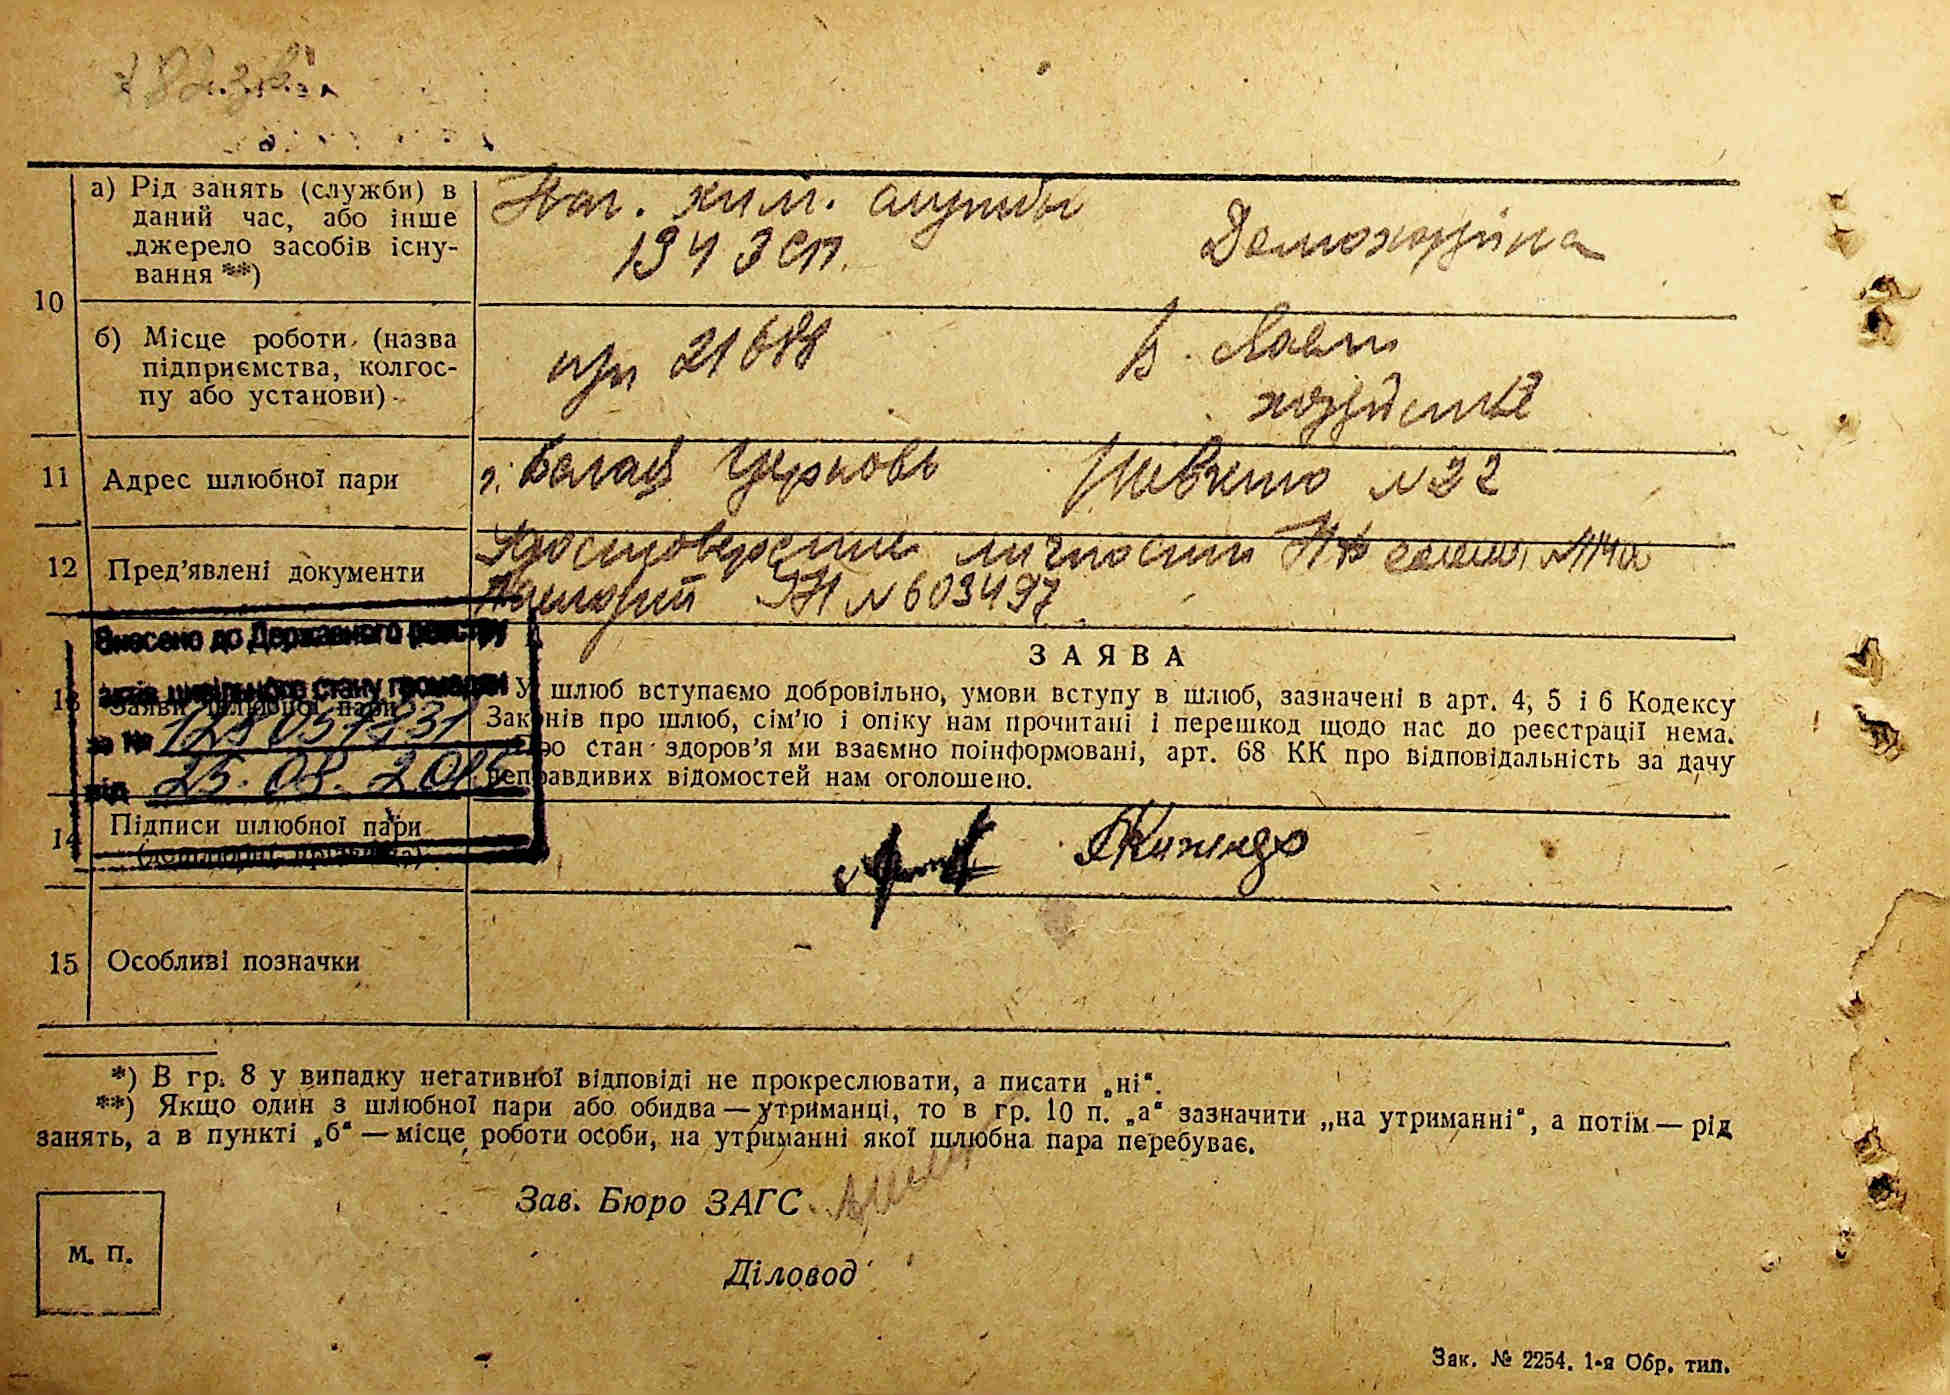 10
а) Рід занять (служби) в
даний час, або інше
джерело засобів існу-
вання **)
Нач. хим. службы
194 З СП.
Домохозяйка
б) Місце роботи (назва
підприємства, колгос-
пу або установи)
при 21
В. своем
хозяйстве
11 Адрес шлюбної пари
г. Белая Церковь Шевченко №22
12 Пред'явлені документи
Удостоверение личности
Паспорт №603497
Внесено до Державного реєстру
актів цивільного стану громадян
за №
від 25.08.2015
13 Заяви шлюбної пари
ЗАЯВА
У шлюб вступаємо добровільно, умови вступу в шлюб, зазначені в арт. 4, 5 і 6 Кодексу
Законів про шлюб, сім'ю і опіку нам прочитані і перешкод щодо нас до реєстрації нема.
Про стан здоров'я ми взаємно поінформовані, арт. 68 КК про відповідальність за дачу
неправдивих відомостей нам оголошено.
14 Підписи шлюбної пари
15 Особливі позначки
*) В гр. 8 у випадку негативної відповіді не прокреслювати, а писати „ні“.
**) Якщо один з шлюбної пари або обидва — утриманці, то в гр. 10 п. „а“ зазначити „на утриманні“, а потім — рід
занять, а в пункті „б“ — місце роботи особи, на утриманні якої шлюбна пара перебуває.
Зав. Бюро ЗАГС
Діловод
М. П.
Зак. № 2254. 1-я Обр. тип.